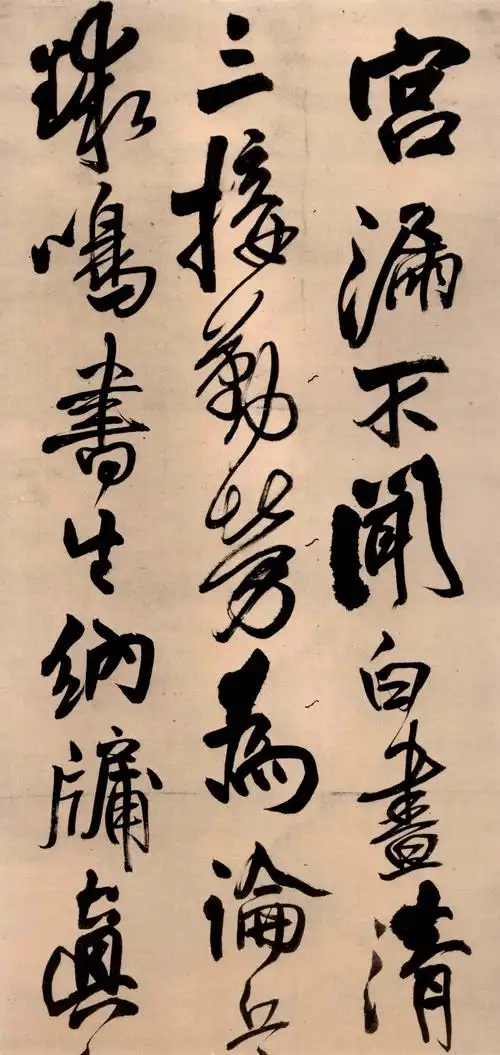 宮漏不聞白晝清
三接勤勞為論兵
鳴書生納牖真